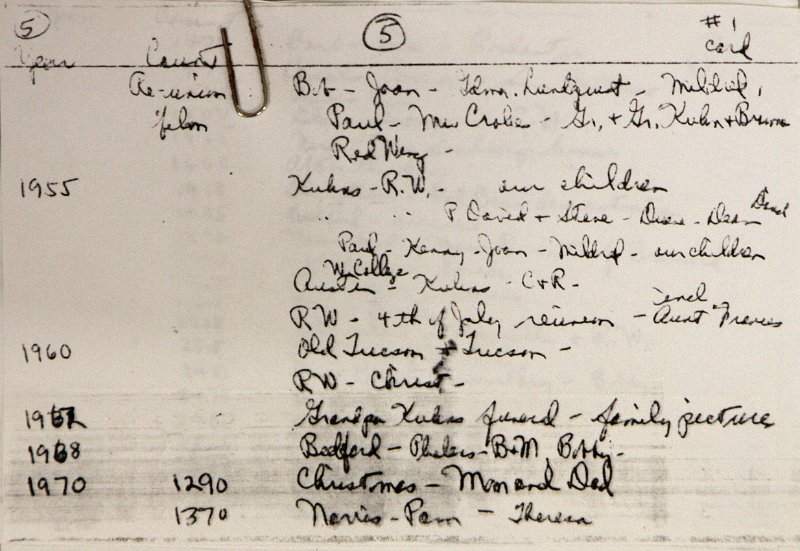 5 5 #1
Year Count card
Re-union Bob - Joan - Edna. Lundquist - Mildred,
film Paul - Mrs Crobe - Gr. + Gr. Kuhn + Brown
Red Wing -
1955 Kuhns - R.W. - our children
" " P David + Steve - Diane - Dean David
Paul - Kenny - Joan - Mildred - our children
Wn College
Austin - Kuhns - C + R -
RW - 4th of July reunion - Aunt Frances
1960 Old Tucson + Tucson -
RW - Christ -
1962 Grandpa Kuhns funeral - family picture
1968 Bedford - Phelers - B+M, Bobby -
1970 1290 Christmas - Mom and Dad
1370 Norris - Pam - Theresa